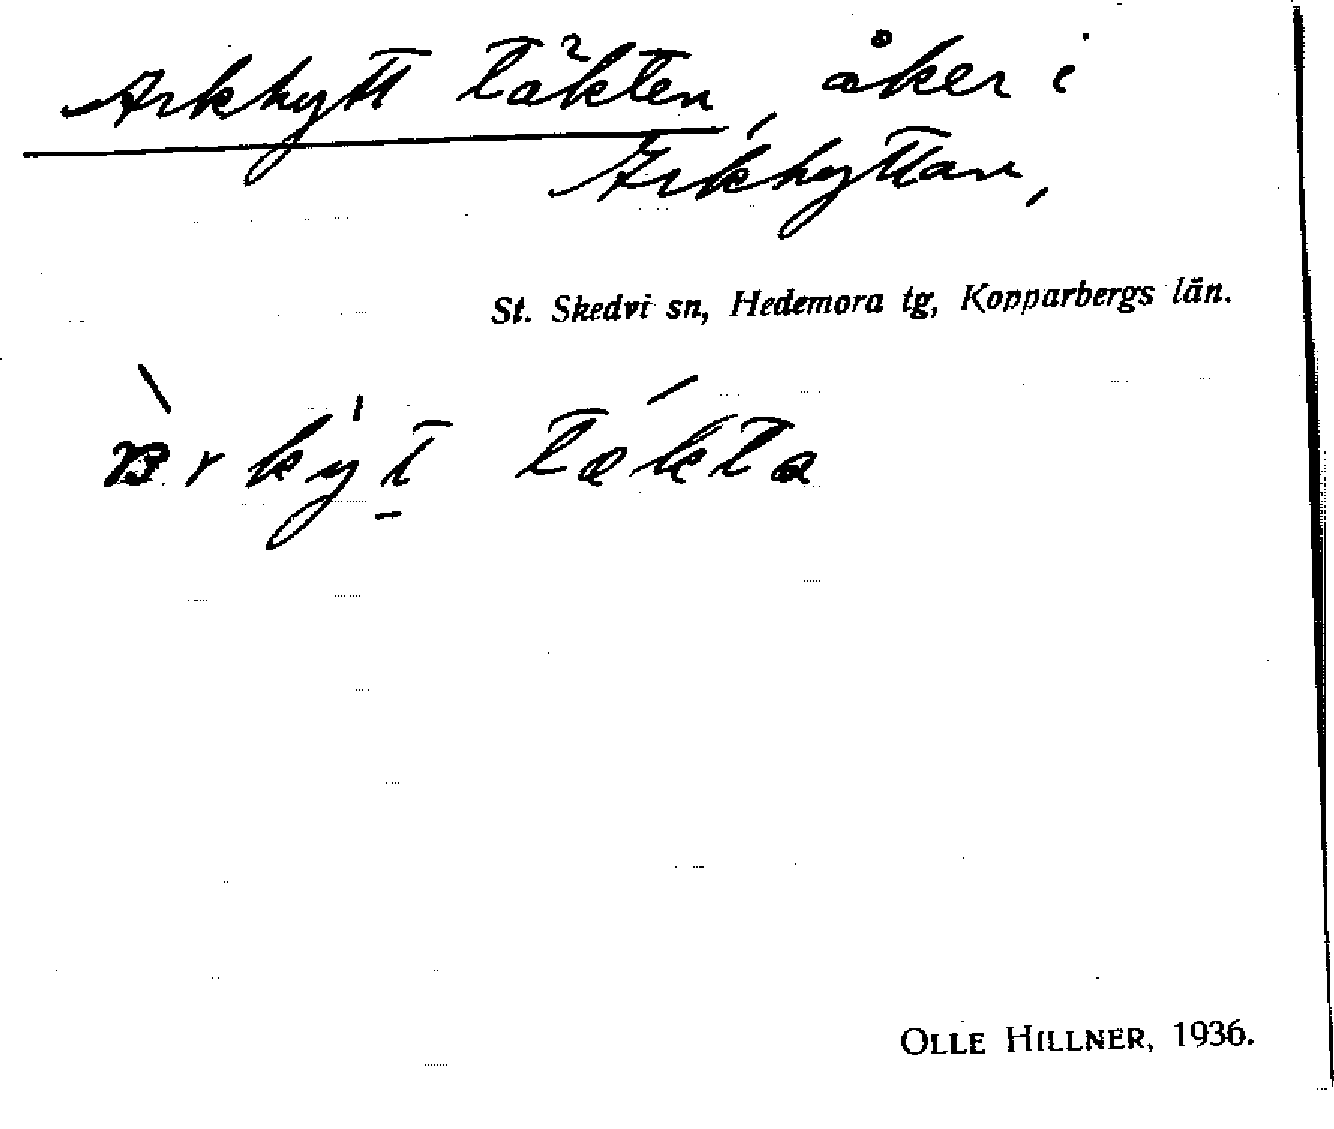 Arkhytt täkten, åker i
Arkhyttan,
St. Skedvi sn, Hedemora tg, Kopparbergs län.
täkta
OLLE HILLNER, 1936.